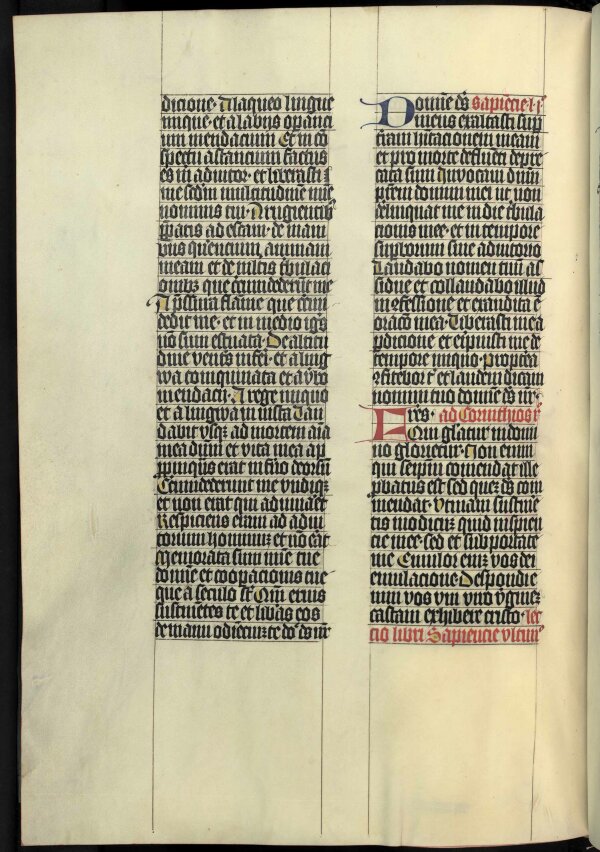 dicione · A laqueo lingue
inique · et a labijs opanci
um mendacium Et in cō
spectu astancium factus
es m̄ adiutor · et liberasti
me scdm̄ multitudinē mīe
nominis tui · A rugientibꝰ
ꝑparatis ad escam · de mani
bus querencium animam
meam et de multis tribulaci
onibꝫ que circūdederūt me
A pssura flāme que circū
dedit me · et in medio ignis
nō sum estuata · De altitu
dine ventris inferi · et a ling
wa coinquinata et a vbo
mendacii · A rege iniquo
et a lingwa in iusta Lau
dabit vsqꝫ ad mortem aīa
mea dūm et vita mea ap
ppinqūs erat in īferno deorsū
Circumdederunt me vndiqꝫ
et non erat qui adiuuaret
Respiciens eram ad adiu
torium hominum et nō erāt
Memorata sum mīe tue
domīe et coopacionis tue
que a seculo sūt Qm̄ eruis
sustinētes te et libas eos
de manu odiencium te dō ds nr̄
Domīe ds sapiēcie li
Deus exaltasti sup
terram hītacionem meam
et pro morte defluēti depre
cata sum Inuocaui dūm
patrem domini mei vt non
delinquat me in die tribula
cionis mee · et in tempore
supborum sine adiutorio
Laudabo nomen tuū as
sidue et collaudabo illud
in ꝯfessione et exaudita ē
oracō mea · Liberasti me a
pdicione et eripuisti me de
tempore iniquo Propterea
ꝯfitebor t̄ et laudem dicam
nomini tuo domīe ds nr̄ ·
Fres · ad Corinthios
Qui gl̄atur in domi
no glorietur · Non enim
qui seipm̄ comendat ille
pbatus est sed quē ds com
mendat · Vtinam sustine
tis modicū quid insipien
cie mee · sed et subportate
me Emulor enī vos dei
emulacione · Despondi e
nim vos vni viro virginē
castam exhibere cristo · lec
cio libri Sapiencie vltimū